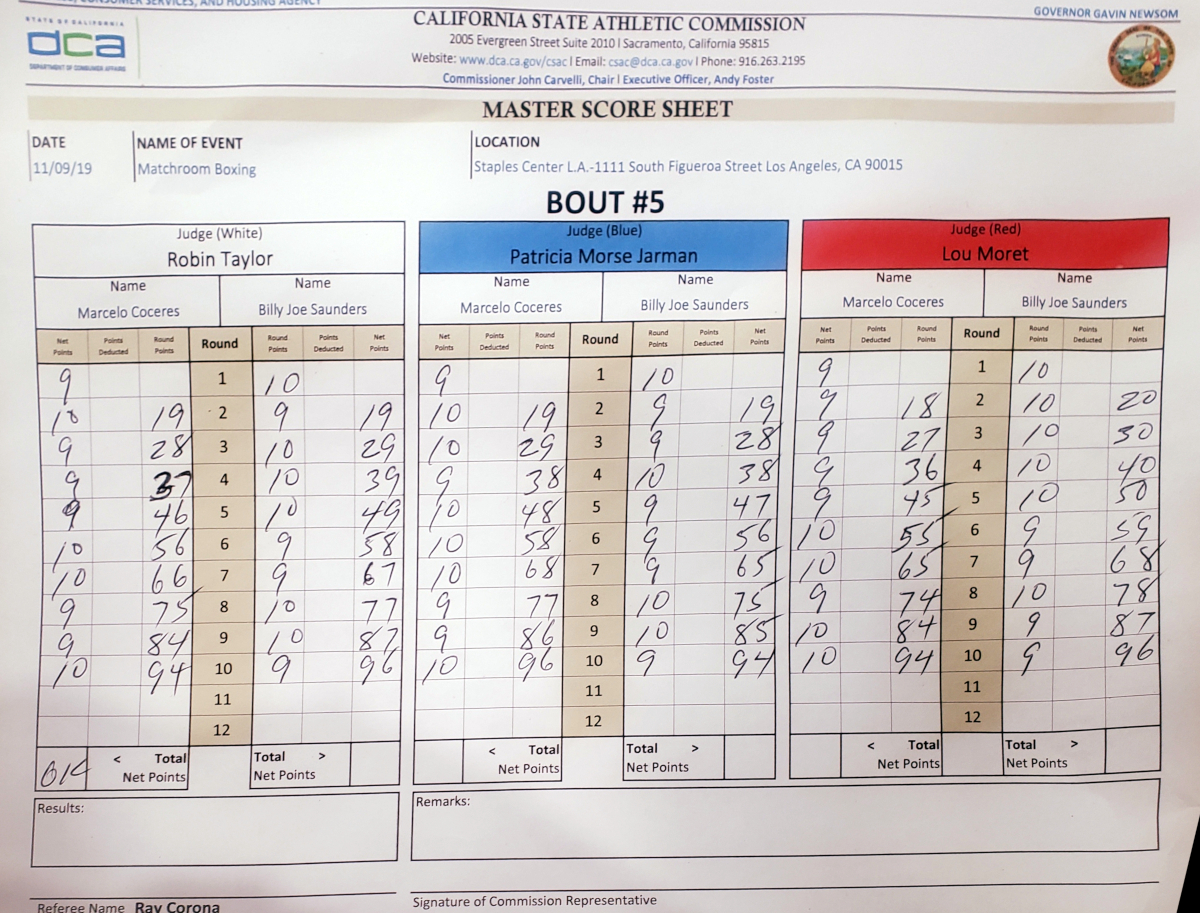 CONSUMER SERVICES, AND HOUSING AGENCY
GOVERNOR GAVIN NEWSOM
STATE OF CALIFORNIA
dca
DEPARTMENT OF CONSUMER AFFAIRS
CALIFORNIA STATE ATHLETIC COMMISSION
2005 Evergreen Street Suite 2010 | Sacramento, California 95815
Website: www.dca.ca.gov/csac | Email: csac@dca.ca.gov | Phone: 916.263.2195
Commissioner John Carvelli, Chair | Executive Officer, Andy Foster
MASTER SCORE SHEET
DATE NAME OF EVENT LOCATION
11/09/19 Matchroom Boxing Staples Center L.A.-1111 South Figueroa Street Los Angeles, CA 90015
BOUT #5
Judge (White) Judge (Blue) Judge (Red)
Robin Taylor Patricia Morse Jarman Lou Moret
Name Name Name Name Name Name
Marcelo Coceres Billy Joe Saunders Marcelo Coceres Billy Joe Saunders Marcelo Coceres Billy Joe Saunders
Net Points Points Deducted Round Points Round Round Points Points Deducted Net Points Net Points Points Deducted Round Points Round Round Points Points Deducted Net Points Net Points Points Deducted Round Points Round Round Points Points Deducted Net Points
9 1 10 9 1 10 9 1 10
10 19 2 9 19 10 19 2 9 19 9 18 2 10 20
9 28 3 10 29 10 29 3 9 28 9 27 3 10 30
9 37 4 10 39 9 38 4 10 38 9 36 4 10 40
9 46 5 10 49 10 48 5 9 47 9 45 5 10 50
10 56 6 9 58 10 58 6 9 56 10 55 6 9 59
10 66 7 9 67 10 68 7 9 65 10 65 7 9 68
9 75 8 10 77 9 77 8 10 75 9 74 8 10 78
9 84 9 10 87 9 86 9 10 85 10 84 9 9 87
10 94 10 9 96 10 96 10 9 94 10 94 10 9 96
11 11 11
12 12 12
< Total Total > < Total Total > < Total Total >
Net Points Net Points Net Points Net Points Net Points Net Points
Results: Remarks:
Referee Name Ray Corona Signature of Commission Representative